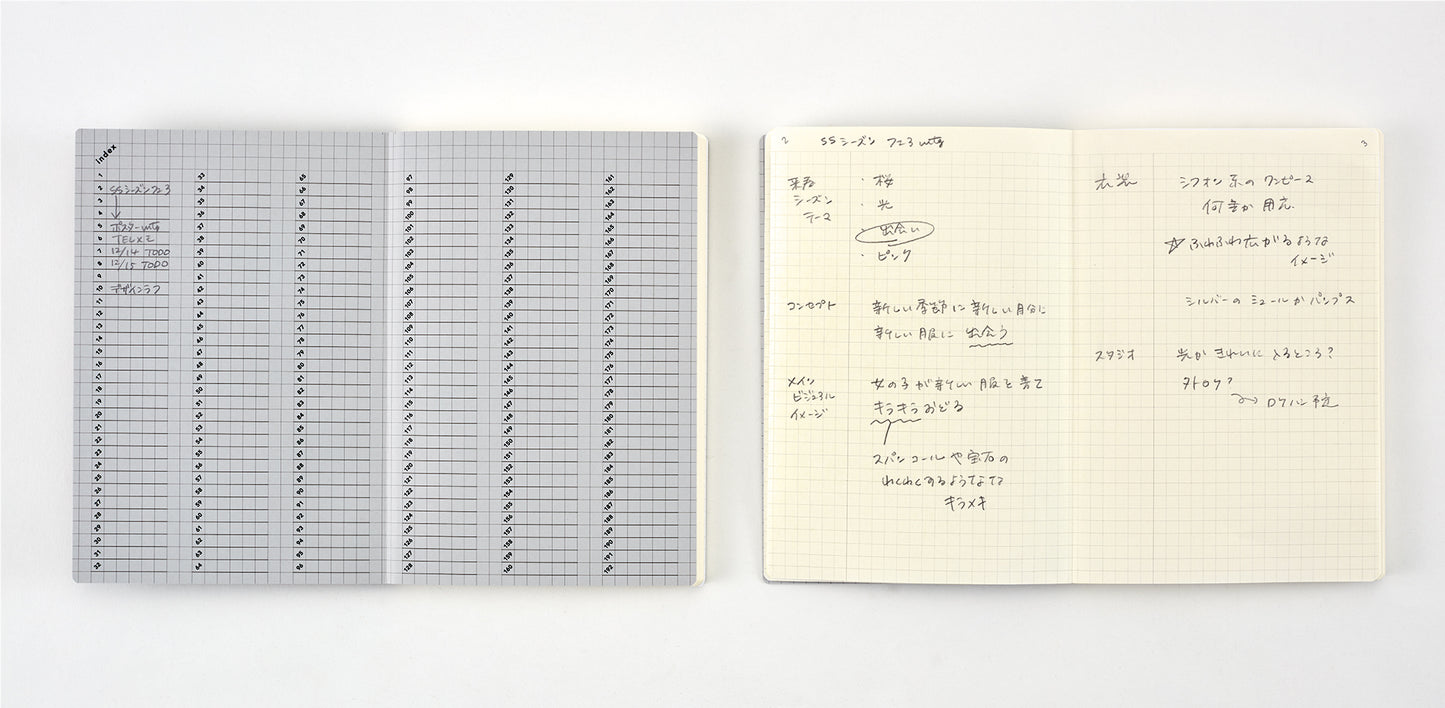 index
1
2 SSシーズンフェア
3
4
5 ポスターmtg
6 TELメモ
7 12/14 TODO
8 12/15 TODO
9
10 デザインラフ
11
12
13
14
15
16
17
18
19
20
21
22
23
24
25
26
27
28
29
30
31
32
33
34
35
36
37
38
39
40
41
42
43
44
45
46
47
48
49
50
51
52
53
54
55
56
57
58
59
60
61
62
63
64
65
66
67
68
69
70
71
72
73
74
75
76
77
78
79
80
81
82
83
84
85
86
87
88
89
90
91
92
93
94
95
96
97
98
99
100
101
102
103
104
105
106
107
108
109
110
111
112
113
114
115
116
117
118
119
120
121
122
123
124
125
126
127
128
129
130
131
132
133
134
135
136
137
138
139
140
141
142
143
144
145
146
147
148
149
150
151
152
153
154
155
156
157
158
159
160
161
162
163
164
165
166
167
168
169
170
171
172
173
174
175
176
177
178
179
180
181
182
183
184
185
186
187
188
189
190
191
192
2
SSシーズン フェア mtg
来春
シーズン
テーマ
・桜
・光
・出会い
・ピンク
コンセプト
新しい季節に新しい自分に
新しい服に 出会う
メイン
ビジュアル
イメージ
女の子が新しい服を着て
キラキラおどる
スパンコールや宝石の
わくわくするような
キラメキ
3
衣装
シフォン系のワンピース
何着か用意
☆ふわふわ広がるような
イメージ
シルバーの ミュールか パンプス
スタジオ
光がきれいに入るところ?
外ロケ?
ロケハン予定